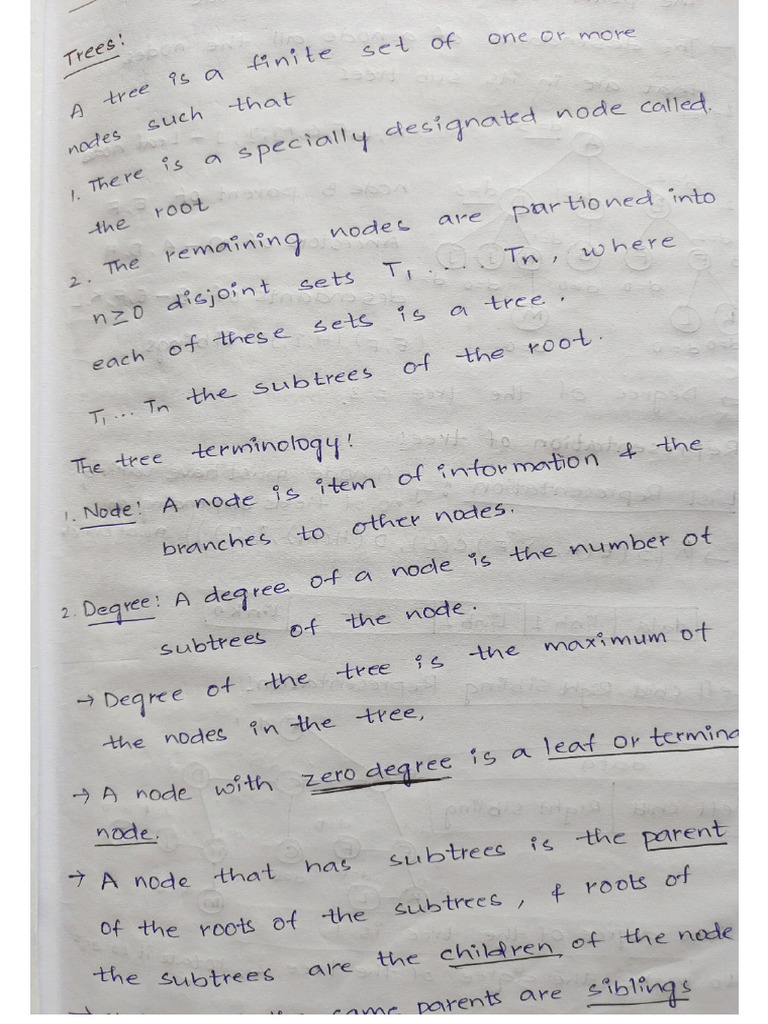 Trees:
A tree is a finite set of one or more
nodes such that
1. There is a specially designated node called.
the root
2. The remaining nodes are partioned into
n≥0 disjoint sets T1 .... Tn, where
each of these sets is a tree.
T1... Tn the subtrees of the root.
The tree terminology!
1. Node: A node is item of information & the
branches to other nodes.
2. Degree: A degree of a node is the number of
subtrees of the node.
→ Degree of the tree is the maximum of
the nodes in the tree,
→ A node with zero degree is a leaf or termina
node.
→ A node that has subtrees is the parent
of the roots of the subtrees, & roots of
the subtrees are the children of the node
same parents are siblings